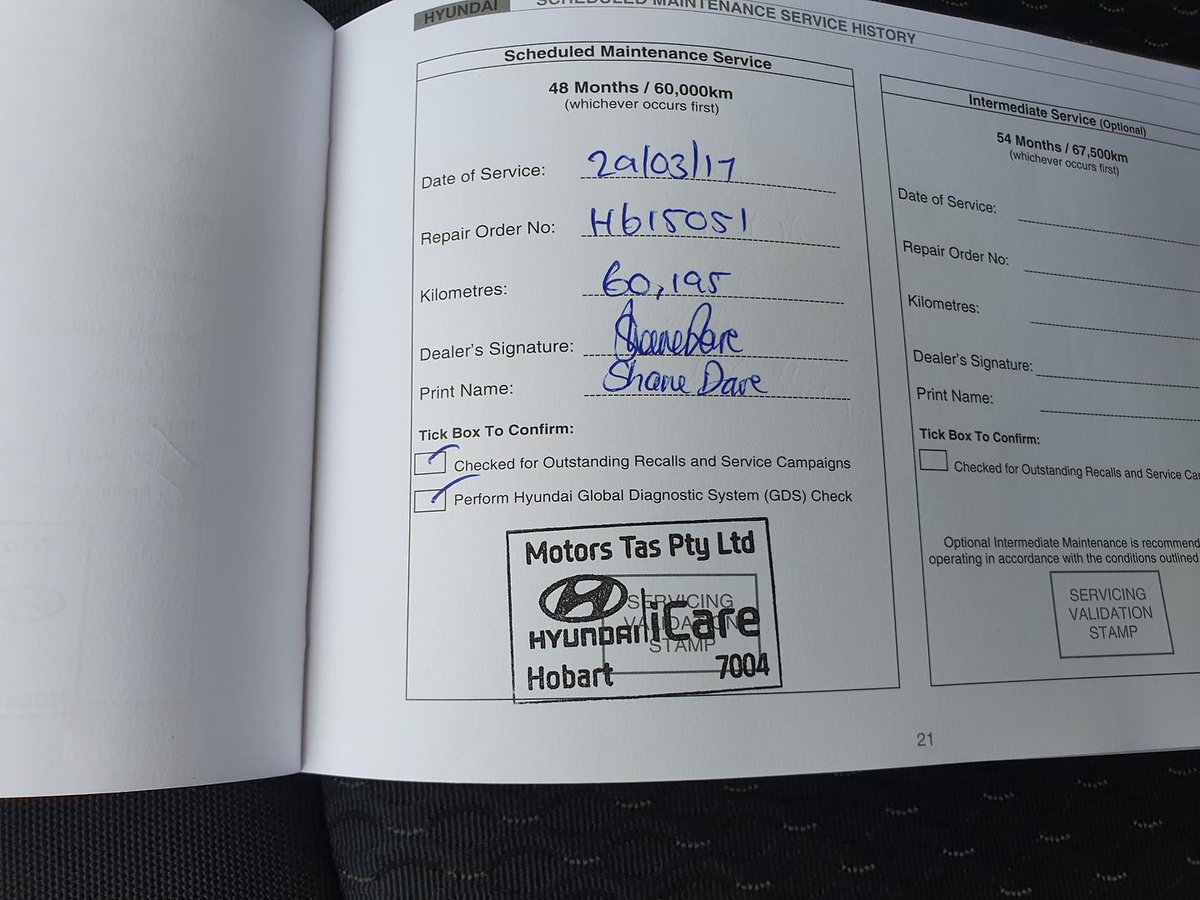 HYUNDAI
SCHEDULED MAINTENANCE SERVICE HISTORY
Scheduled Maintenance Service
48 Months / 60,000km
(whichever occurs first)
Date of Service: 29/03/17
Repair Order No: H615051
Kilometres: 60,195
Dealer's Signature: Shane Dare
Print Name: Shane Dare
Tick Box To Confirm:
Checked for Outstanding Recalls and Service Campaigns
Perform Hyundai Global Diagnostic System (GDS) Check
SERVICING
VALIDATION
STAMP
Motors Tas Pty Ltd
HYUNDAI iCare
Hobart 7004
Intermediate Service (Optional)
54 Months / 67,500km
(whichever occurs first)
Date of Service:
Repair Order No:
Kilometres:
Dealer's Signature:
Print Name:
Tick Box To Confirm:
Checked for Outstanding Recalls and Service
Optional Intermediate Maintenance is
operating in accordance with the conditions outlined
SERVICING
VALIDATION
STAMP
21